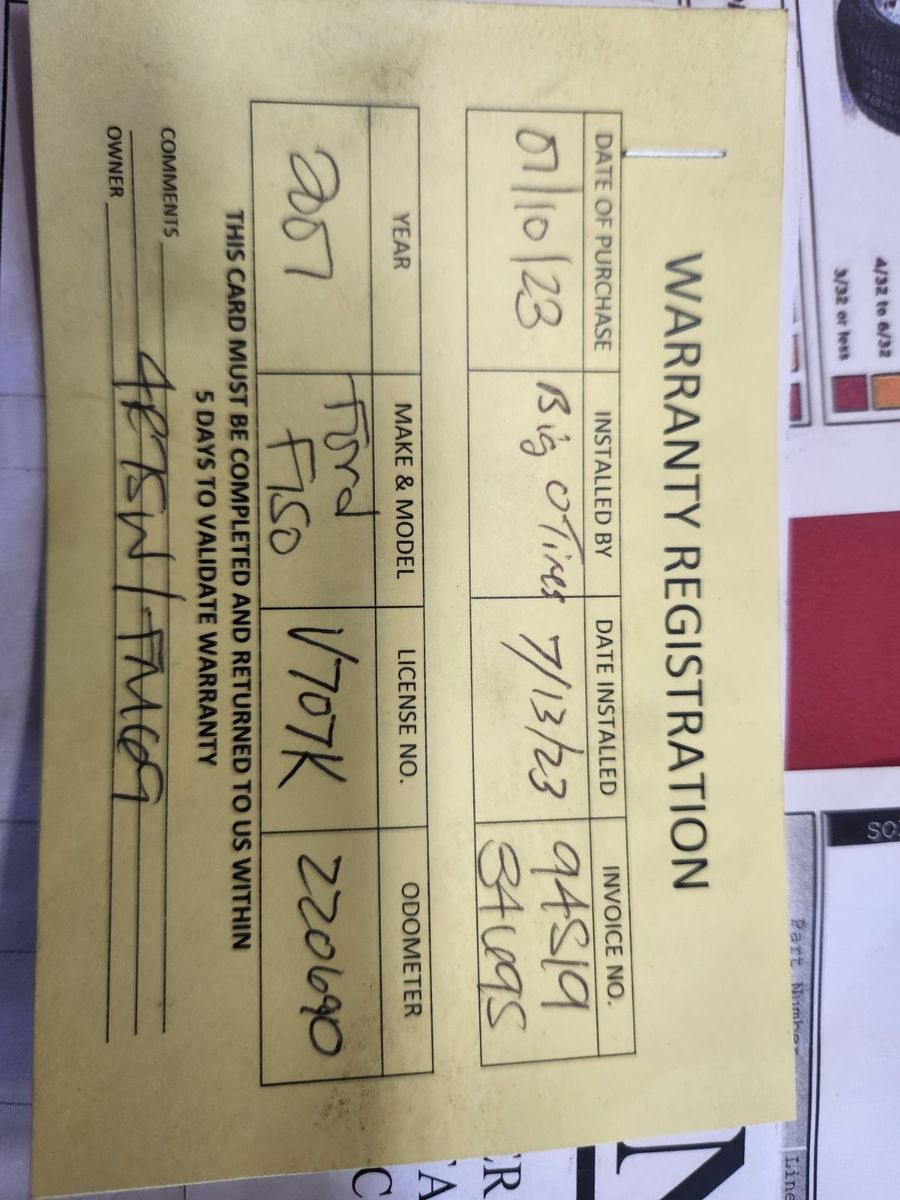 WARRANTY REGISTRATION
DATE OF PURCHASE INSTALLED BY DATE INSTALLED INVOICE NO.
07/10/23 Big O Tires 7/13/23 94519
YEAR MAKE & MODEL LICENSE NO. ODOMETER
2007 Ford F150 1/707K 220690
THIS CARD MUST BE COMPLETED AND RETURNED TO US WITHIN
5 DAYS TO VALIDATE WARRANTY
COMMENTS
4R75W/FMG09
OWNER
4/32 to 6/32
3/32 or less
Part Number